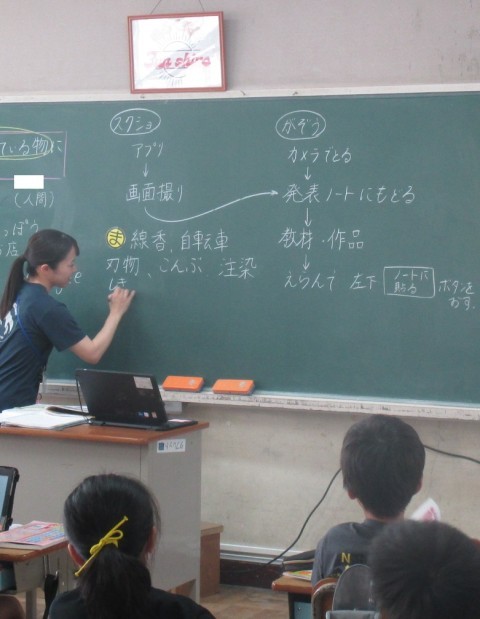 ている物に
(人間)
っぽう
店
スクショ
アプリ
↓
画面撮り
がぞう
カメラでとる
↓
発表ノートにもどる
↓
教材・作品
↓
えらんで 左下 ノートに貼る ボタンを
おす。
ま 線香、自転車
刃物、こんぶ 注染